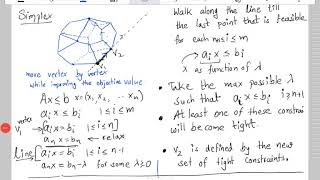 Simplex
V₂
move vertex by vertex
while improving the objective value
Ax ≤ b x = (x₁, x₂, ... xₙ)
aᵢx ≤ bᵢ 1 ≤ i ≤ m
vertex
V₁
aᵢx = bᵢ 1 ≤ i ≤ n
aₙx = bₙ ← relax
Line
aᵢx = bᵢ 1 ≤ i ≤ n-1
aₙx = bₙ - λ for some λ ≥ 0
Walk along the line till
the last point that is feasible
for each n ≤ i ≤ m
aᵢx ≤ bᵢ
λ as function of λ
Take the max possible λ
such that aᵢx ≤ bᵢ i ≥ n+1
At least one of these constraints
will become tight.
V₂ is defined by the new
set of tight constraints.